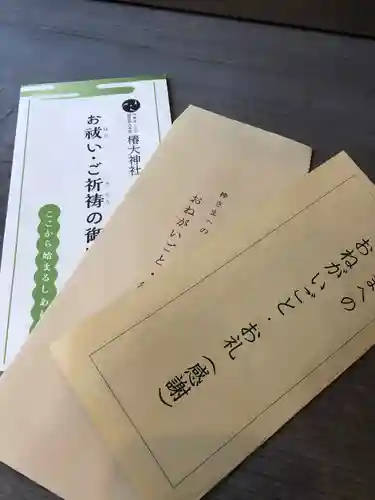 椿大神社
お祓い・ご祈祷の御
はら
きとう
ここから始まるしあ
神さまへの
おねがいごと・
まへの
おねがいごと・お礼(感謝)